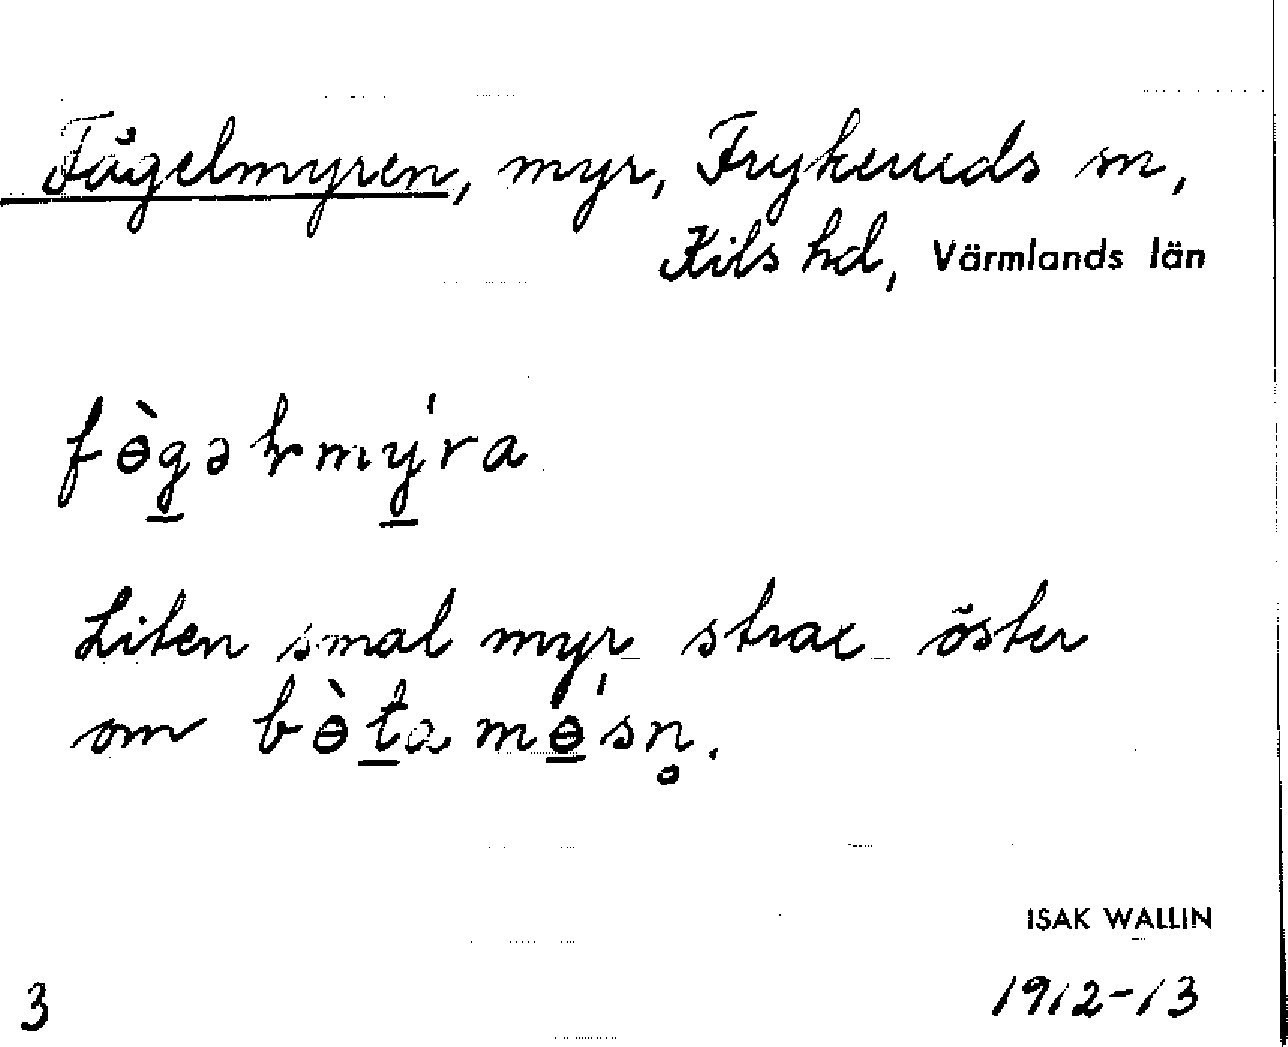 Fågelmyren, myr, Frykeruds sn,
Kils hd, Värmlands län
fɵ̀gəɫmy̍ra
Liten smal myr strax öster
om bɵ̀ta mɵ̍sn̥.
ISAK WALLIN
3 1912-13